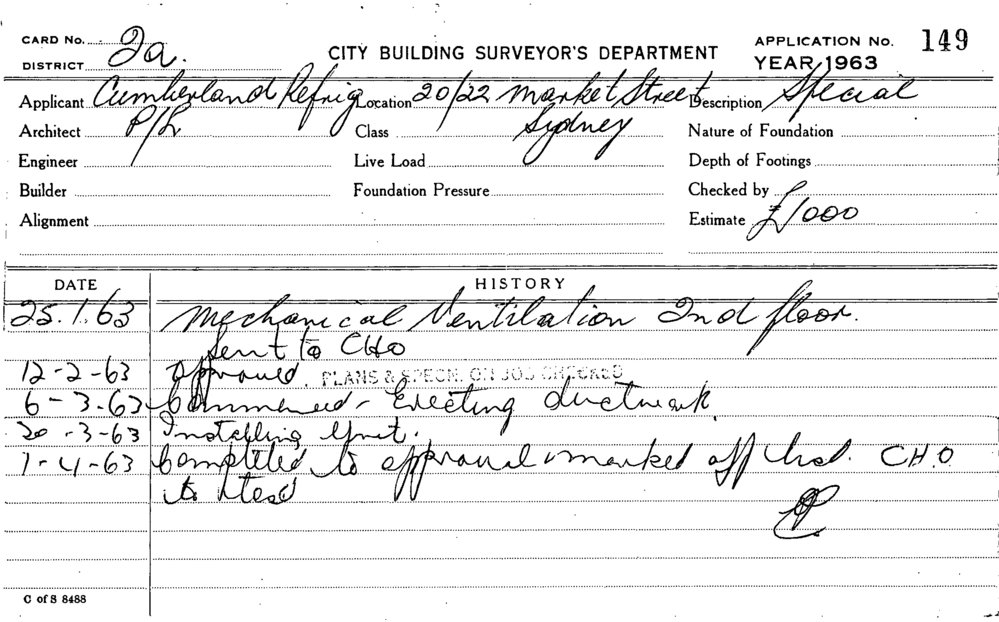 CARD No. 2a. CITY BUILDING SURVEYOR'S DEPARTMENT APPLICATION No. 149
DISTRICT YEAR 1963
Applicant Cumberland Refrig Location 20/22 Market Street Description Special
Architect P/L Class Sydney Nature of Foundation
Engineer Live Load Depth of Footings
Builder Foundation Pressure Checked by
Alignment Estimate £1000
DATE HISTORY
25.1.63 Mechanical Ventilation 2nd floor.
Sent to CHO
12-2-63 Approved. PLANS & SPECN. ON JOB CHECKED
6-3-63 Commenced - Erecting ductwork
20-3-63 Installing Unit.
1-4-63 Completed to approval & marked off CHO
to test
C of S 8488